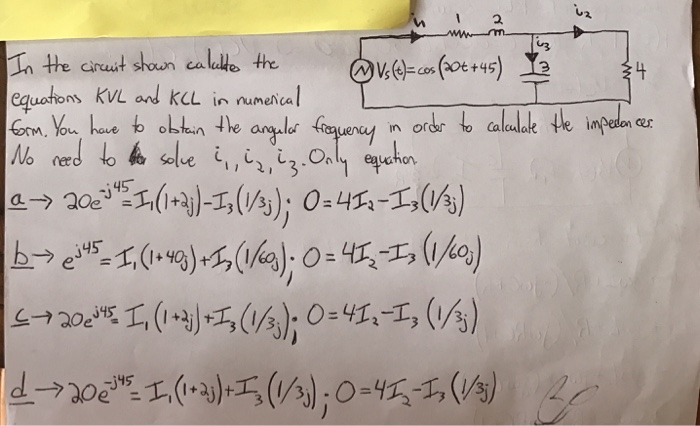 i₁ 1 2 i₂
In the circuit shown calculte the
Vs(t)=cos(20t+45) i₃ 3 4
equations KVL and KCL in numerical
form. You have to obtain the angular frequency in order to calculate the impedances.
No need to solve i₁, i₂, i₃. Only equation
a→ 20e^-j45=I₁(1+2j)-I₃(1/3j); 0=4I₂-I₃(1/3j)
b→ e^j45=I₁(1+40j)+I₃(1/60j); 0=4I₂-I₃(1/60j)
c→ 20e^j45=I₁(1+2j)+I₃(1/3j); 0=4I₂-I₃(1/3j)
d→ 20e^-j45=I₁(1+2j)+I₃(1/3j); 0=4I₂-I₃(1/3j)